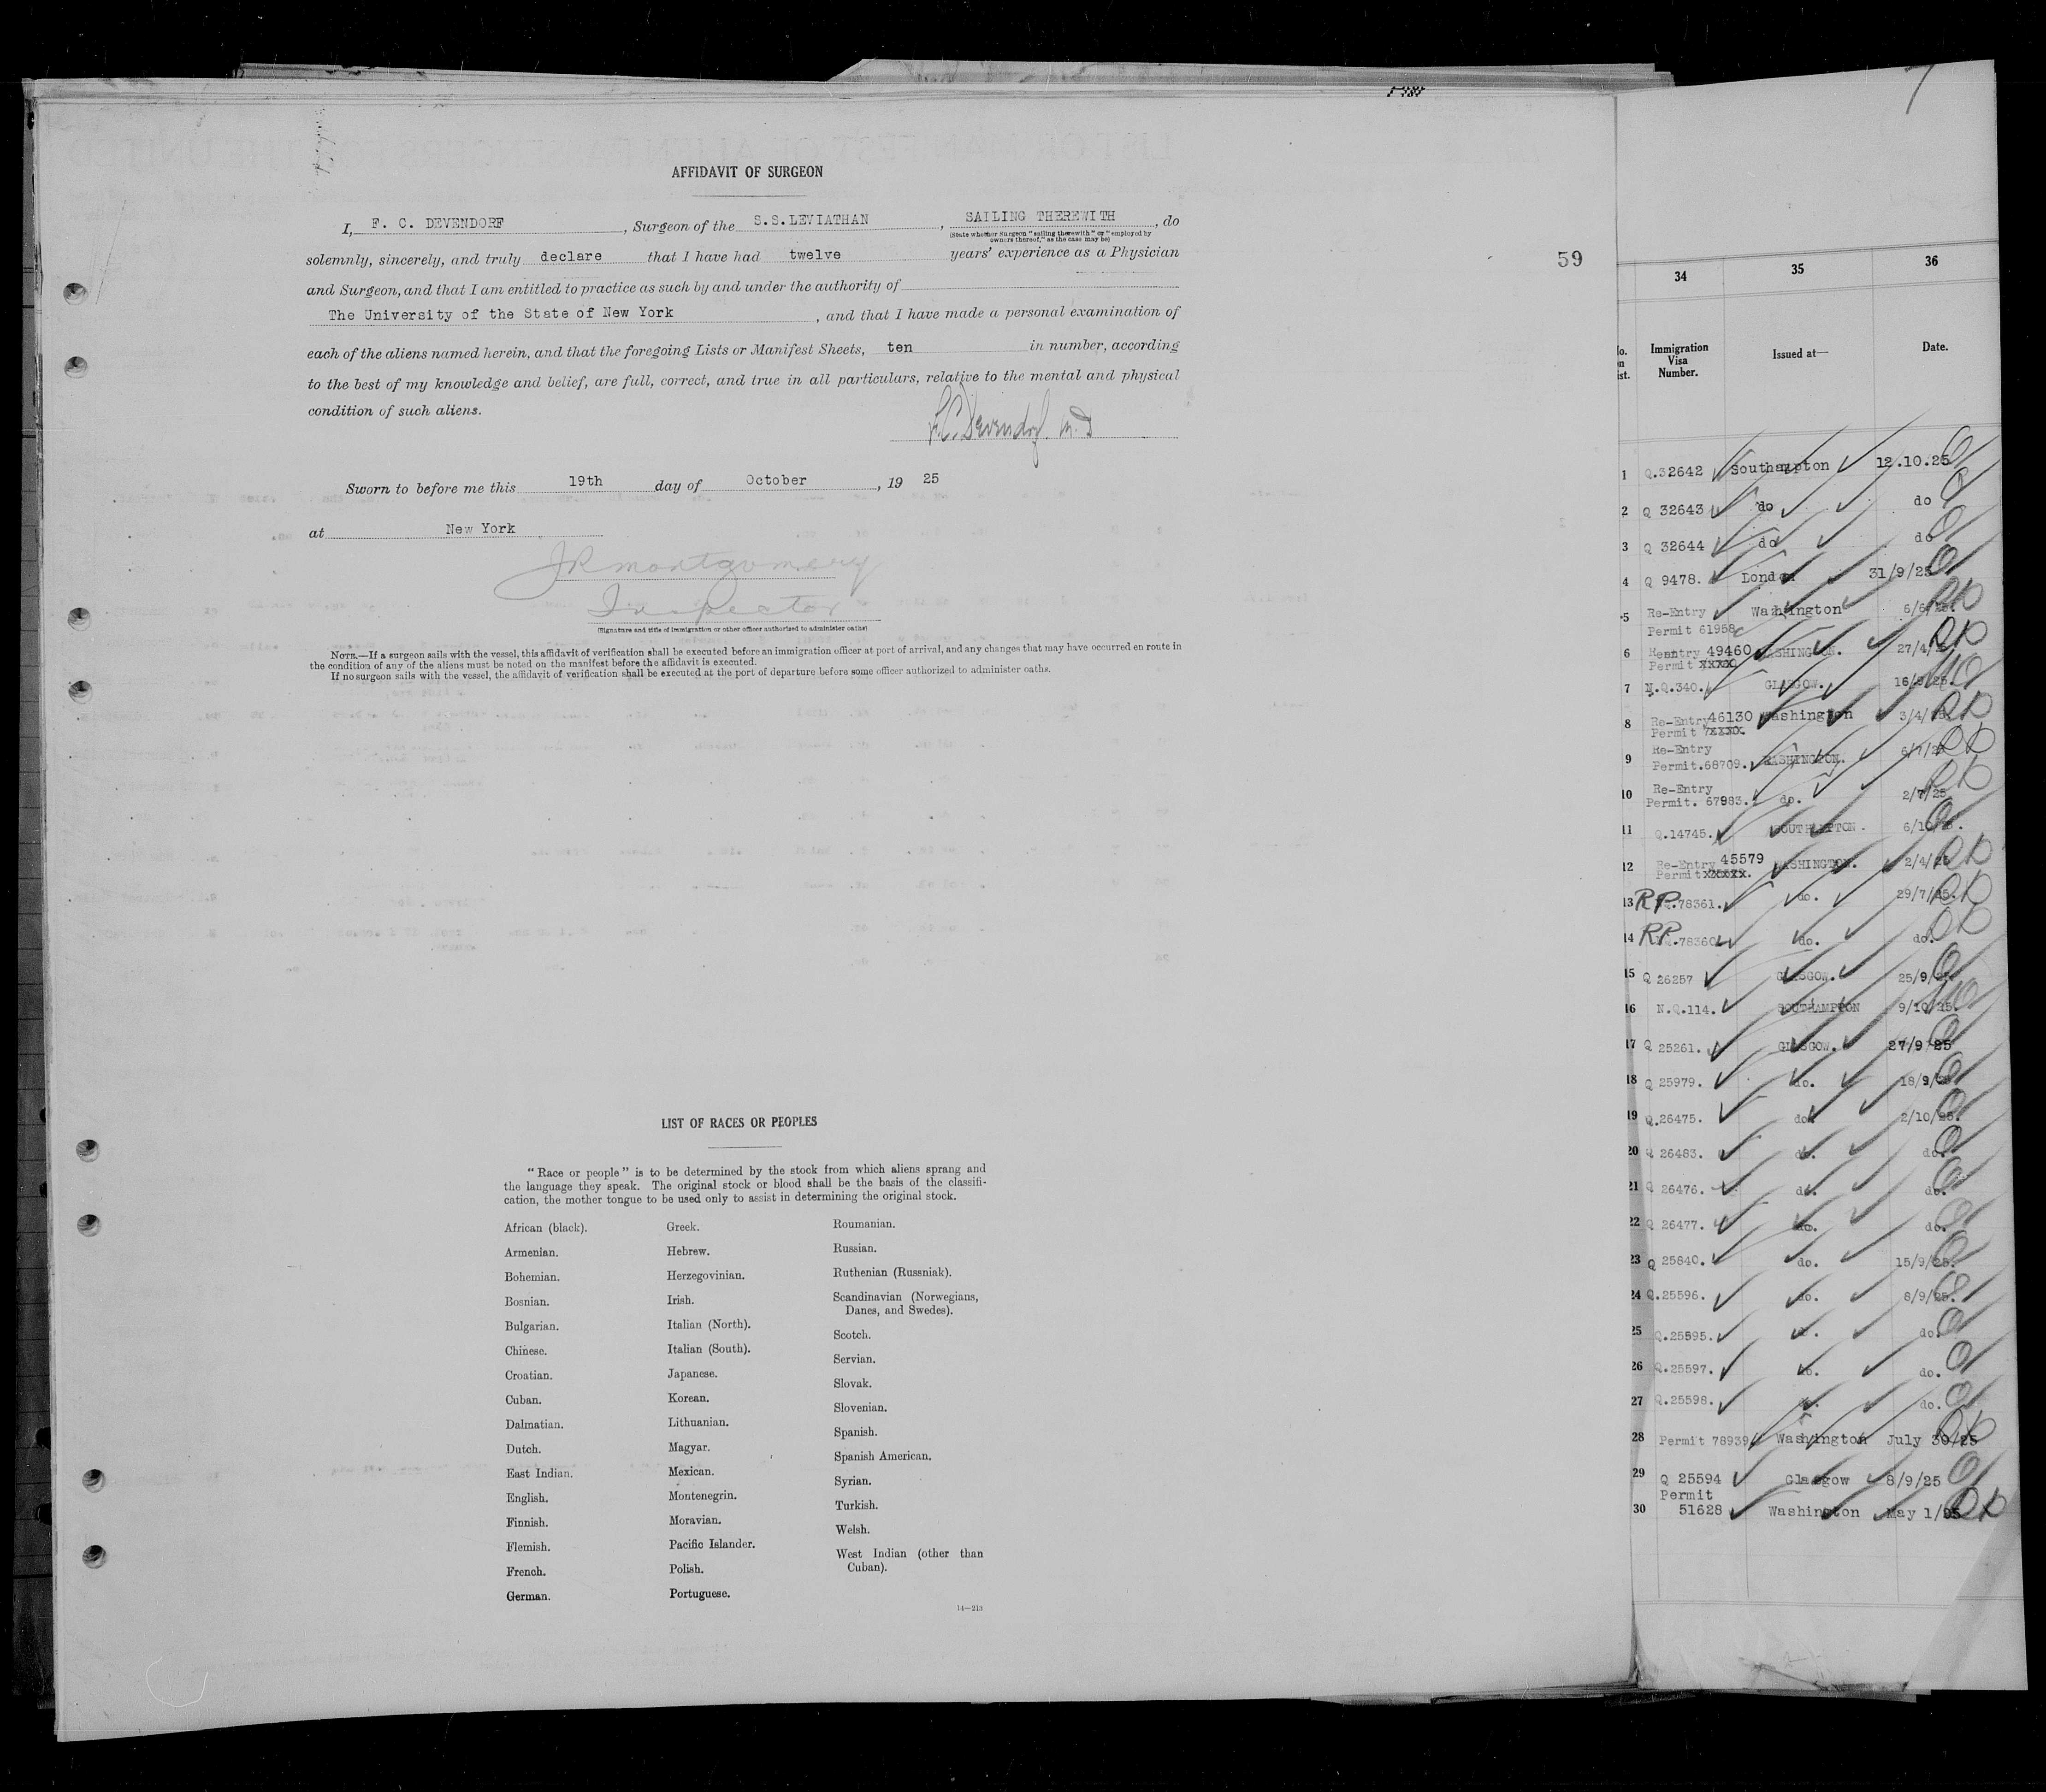 AFFIDAVIT OF SURGEON
I, F. C. DEVENDORF, Surgeon of the S.S.LEVIATHAN, SAILING THEREWITH, do
(State whether Surgeon "sailing therewith" or "employed by
owners thereof," as the case may be)
solemnly, sincerely, and truly declare that I have had twelve years' experience as a Physician
and Surgeon, and that I am entitled to practice as such by and under the authority of
The University of the State of New York, and that I have made a personal examination of
each of the aliens named herein, and that the foregoing Lists or Manifest Sheets, ten in number, according
to the best of my knowledge and belief, are full, correct, and true in all particulars, relative to the mental and physical
condition of such aliens.
F.C. Devendorf. M.D
Sworn to before me this 19th day of October, 19 25
at New York
JR Montgomery
Inspector
(Signature and title of immigration or other officer authorized to administer oaths)
NOTE.—If a surgeon sails with the vessel, this affidavit of verification shall be executed before an immigration officer at port of arrival, and any changes that may have occurred en route in
the condition of any of the aliens must be noted on the manifest before the affidavit is executed.
If no surgeon sails with the vessel, the affidavit of verification shall be executed at the port of departure before some officer authorized to administer oaths.
59
LIST OF RACES OR PEOPLES
"Race or people" is to be determined by the stock from which aliens sprang and
the language they speak. The original stock or blood shall be the basis of the classifi-
cation, the mother tongue to be used only to assist in determining the original stock.
African (black).
Armenian.
Bohemian.
Bosnian.
Bulgarian.
Chinese.
Croatian.
Cuban.
Dalmatian.
Dutch.
East Indian.
English.
Finnish.
Flemish.
French.
German.
Greek.
Hebrew.
Herzegovinian.
Irish.
Italian (North).
Italian (South).
Japanese.
Korean.
Lithuanian.
Magyar.
Mexican.
Montenegrin.
Moravian.
Pacific Islander.
Polish.
Portuguese.
Roumanian.
Russian.
Ruthenian (Russniak).
Scandinavian (Norwegians,
Danes, and Swedes).
Scotch.
Servian.
Slovak.
Slovenian.
Spanish.
Spanish American.
Syrian.
Turkish.
Welsh.
West Indian (other than
Cuban).
14—213
34 35 36
Immigration
Visa
Number.
Issued at—
Date.
1 Q.32642 Southampton 12.10.25
2 Q 32643 do do
3 Q 32644 do do
4 Q 9478. London 31/9/25
5 Re-Entry Washington
Permit 61958
6 49460 WASHINGTON. 27/4/
Permit xxxx
7 N.Q.340. GLASGOW. 16/9/25.
8 Re-Entry 46130 Washington 3/4/
Permit
9 Re-Entry
Permit.68709. WASHINGTON. 6/7/25
10 Re-Entry
Permit. 67983. do. 2/7/25
11 Q.14745. SOUTHAMPTON. 6/10/25.
12 Re-Entry 45579 WASHINGTON. 2/4/25
Permit xxxxx.
13 RP .78361. do. 29/7/25.
14 RP .78360 do. do.
15 Q 26257 GLASGOW. 25/9/25
16 N.Q.114. SOUTHAMPTON 9/10/25.
17 Q 25261. GLASGOW. 27/9/25
18 Q 25979. do. 18/9/25
19 Q.26475. do. 2/10/25.
20 Q 26483. do. do.
21 Q 26476. do. do.
22 Q 26477. do. do.
23 Q 25840. do. 15/9/25.
24 Q.25596. do. 8/9/25.
25 Q.25595. do. do.
26 Q.25597. do. do.
27 Q.25598. do. do.
28 Permit 78939 Washington July 30/25
29 Q 25594 Glasgow 8/9/25
Permit
30 51628 Washington May 1/25